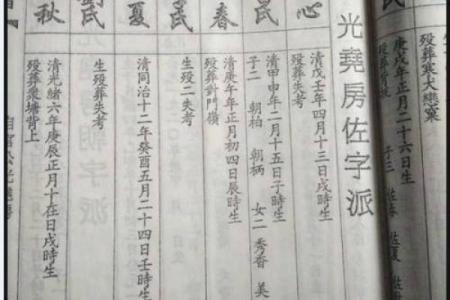 庚戌年正月二十六日生
殁葬寒大巒窠
子三
光堯房佐字派
心
清戊壬年四月十三日戌時生
殁葬失考
民
清甲申年二月十五日子時生
子二 朝柏 朝柄 女二 秀香 美
春
清庚午年正月初四日辰時生
殁葬對門嶺
民
生殁二失考
夏
清同治十二年癸酉五月二十四日壬時生
民
生殁葬失考
秋
清光緒六年庚辰正月十在日戌時生
殁葬眾塘背上